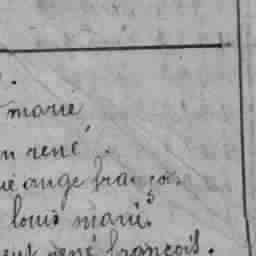 marie
n rené
ange françois
louis marie
rené françois.